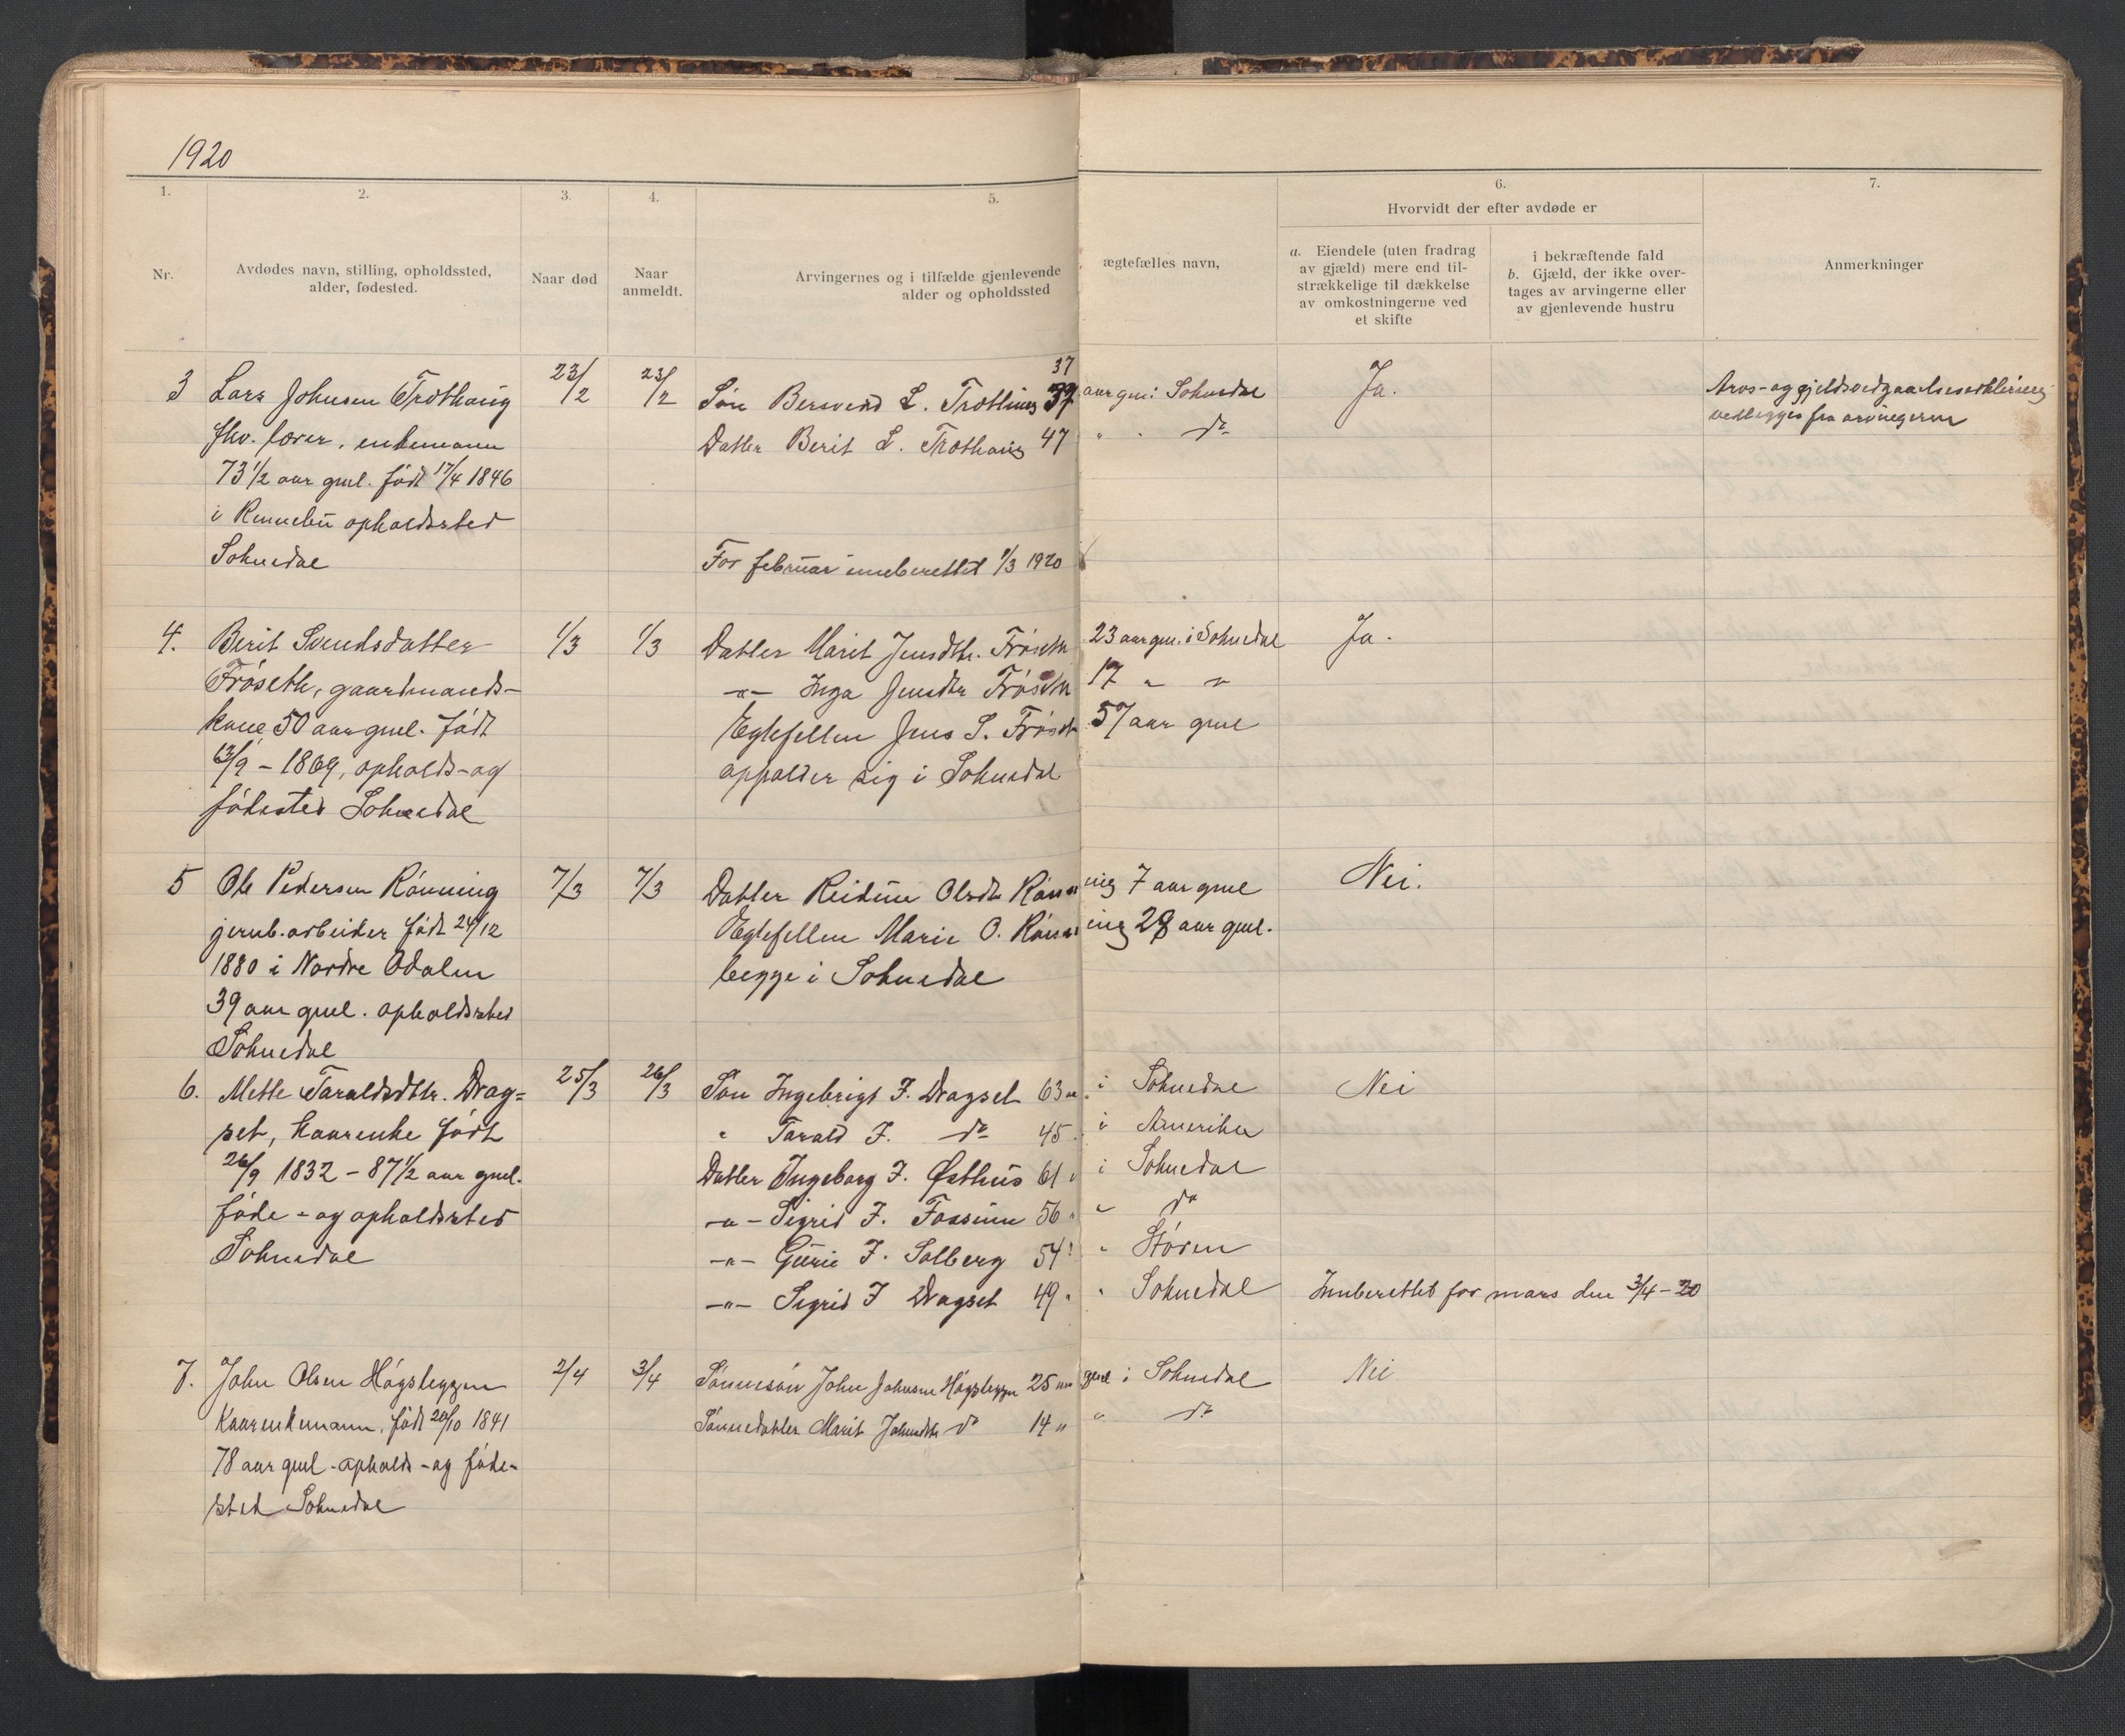 1920
1.
2.
3.
4.
5.
6.
7.
Hvorvidt der efter avdøde er
Nr.
Avdødes navn, stilling, opholdssted,
alder, fødested.
Naar død
Naar
anmeldt.
Arvingernes og i tilfælde gjenlevende ægtefælles navn,
alder og opholdssted
a. Eiendele (uten fradrag
av gjæld) mere end til-
strækkelige til dækkelse
av omkostningerne ved
et skifte
i bekræftende fald
b. Gjæld, der ikke over-
tages av arvingerne eller
av gjenlevende hustru
Anmerkninger
3 Lars Johnsen Trøthaug 23/2 23/2 Søn Bersvend L. Trøthaug 37 aar gm. i Soknedal Ja. Arvs- og gjeldsvedgaaelseserklæring
fhv. lærer, enkemann Datter Berit L. Trøthaug 47 " " do vedlegges fra arvingerne
73 1/2 aar gml. født 17/4 1846
i Rennebu opholdssted
Soknedal For februar inneberettet 1/3 1920
4. Berit Svendsdatter 1/3 1/3 Datter Marit Jensdtr. Frøseth 23 aar gm. i Soknedal Ja.
Frøseth, gaardmands- -"- Inga Jensdtr Frøseth 17 " "
kone 50 aar gml. født Egtefellen Jens S. Frøseth 57 aar gml
13/9 - 1869, opholds- og oppolder sig i Soknedal
fødested Soknedal
5 Ole Pedersen Rønning 7/3 7/3 Datter Reidun Olsdtr Rønning 7 aar gml Nei.
jernb. arbeider født 24/12 Egtefellen Marie O. Rønning 28 aar gml.
1880 i Nordre Odalen begge i Soknedal
39 aar gml. opholdssted
Soknedal
6. Mette Taraldsdtr. Drag= 25/3 26/3 Søn Ingebrigt J. Dragset 63 aar i Soknedal Nei
set, kaarenke født " Tarald J. do 45 " i Amerika
26/9 1832 - 87 1/2 aar gml. Datter Ingeborg J. Østhus 61 " i Soknedal
føde- og opholdssted -"- Sigrid J. Fossum 56 " " do
Soknedal -"- Guri J. Solberg 54 " " Støren
-"- Sigrid J Dragset 49 " " Soknedal Innberettet for mars den 3/4-20
7. John Olsen Høgsteggen 2/4 3/4 Sønnesøn John Johnsen Høgsteggen 25 aar gml i Soknedal Nei
Kaarenkemann, født 20/10 1841 Sønnedatter Marit Johnsdtr do 14 " " do
78 aar gml. opholds- og føde-
sted Soknedal